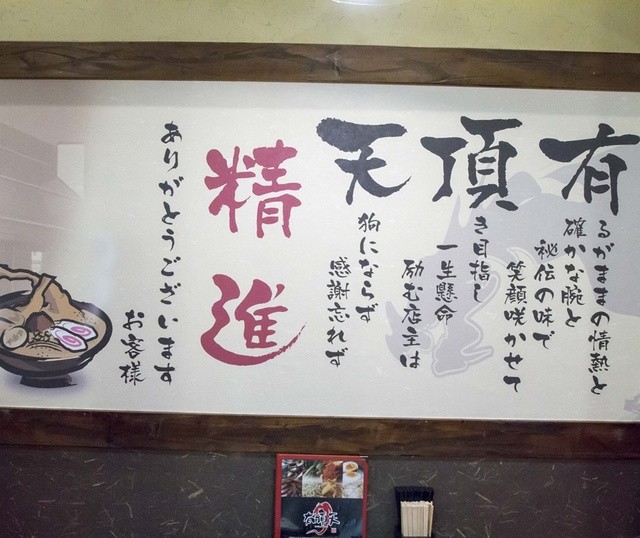 有るがままの情熱と
確かな腕と
秘伝の味で
笑顔咲かせて
頂き目指し
一生懸命
励む店主は
天狗にならず
感謝忘れず
精進
ありがとうございます
お客様
有頂天